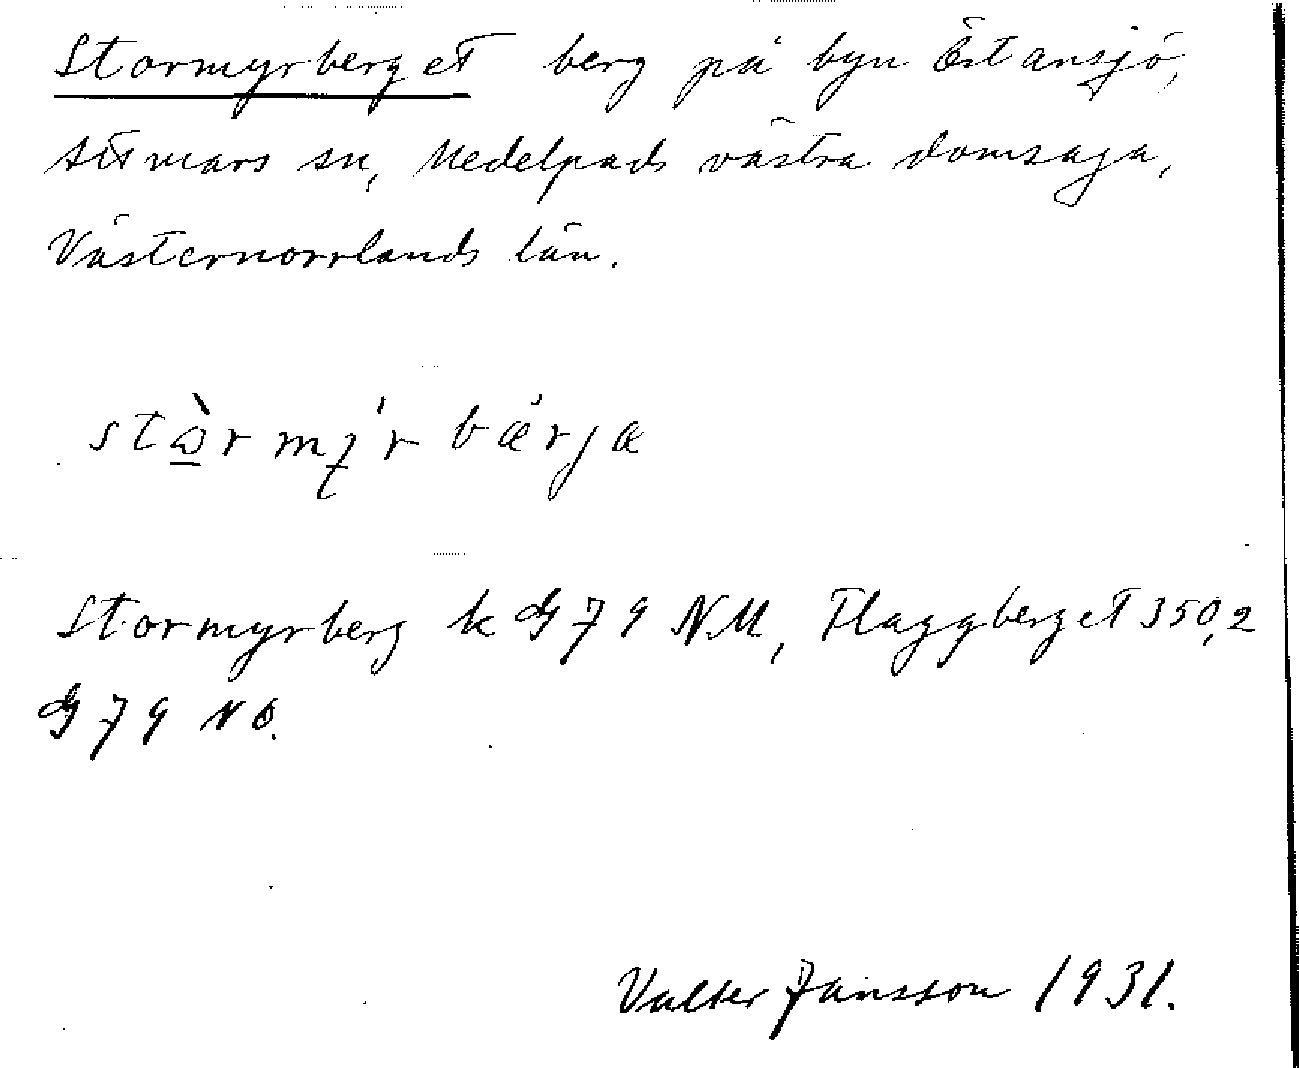 Stormyrberget berg på byn Östansjö,
Attmars sn, Medelpads västra domsaga,
Västernorrlands län.
Stormyrberg k G 79 NM, Flaggberget 350,2
G 79 NÖ.
Valter Jansson 1931.